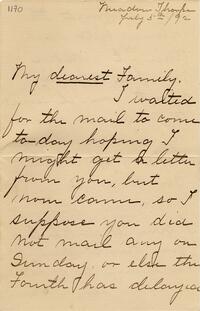 1190
Meadow Thorpe
July 5th /92
My dearest Family.
I waited
for the mail to come
to-day hoping I
might get a letter
from you, but
non came, so I
suppose you did
not mail any on
Sunday, or else the
Fourth has delayed